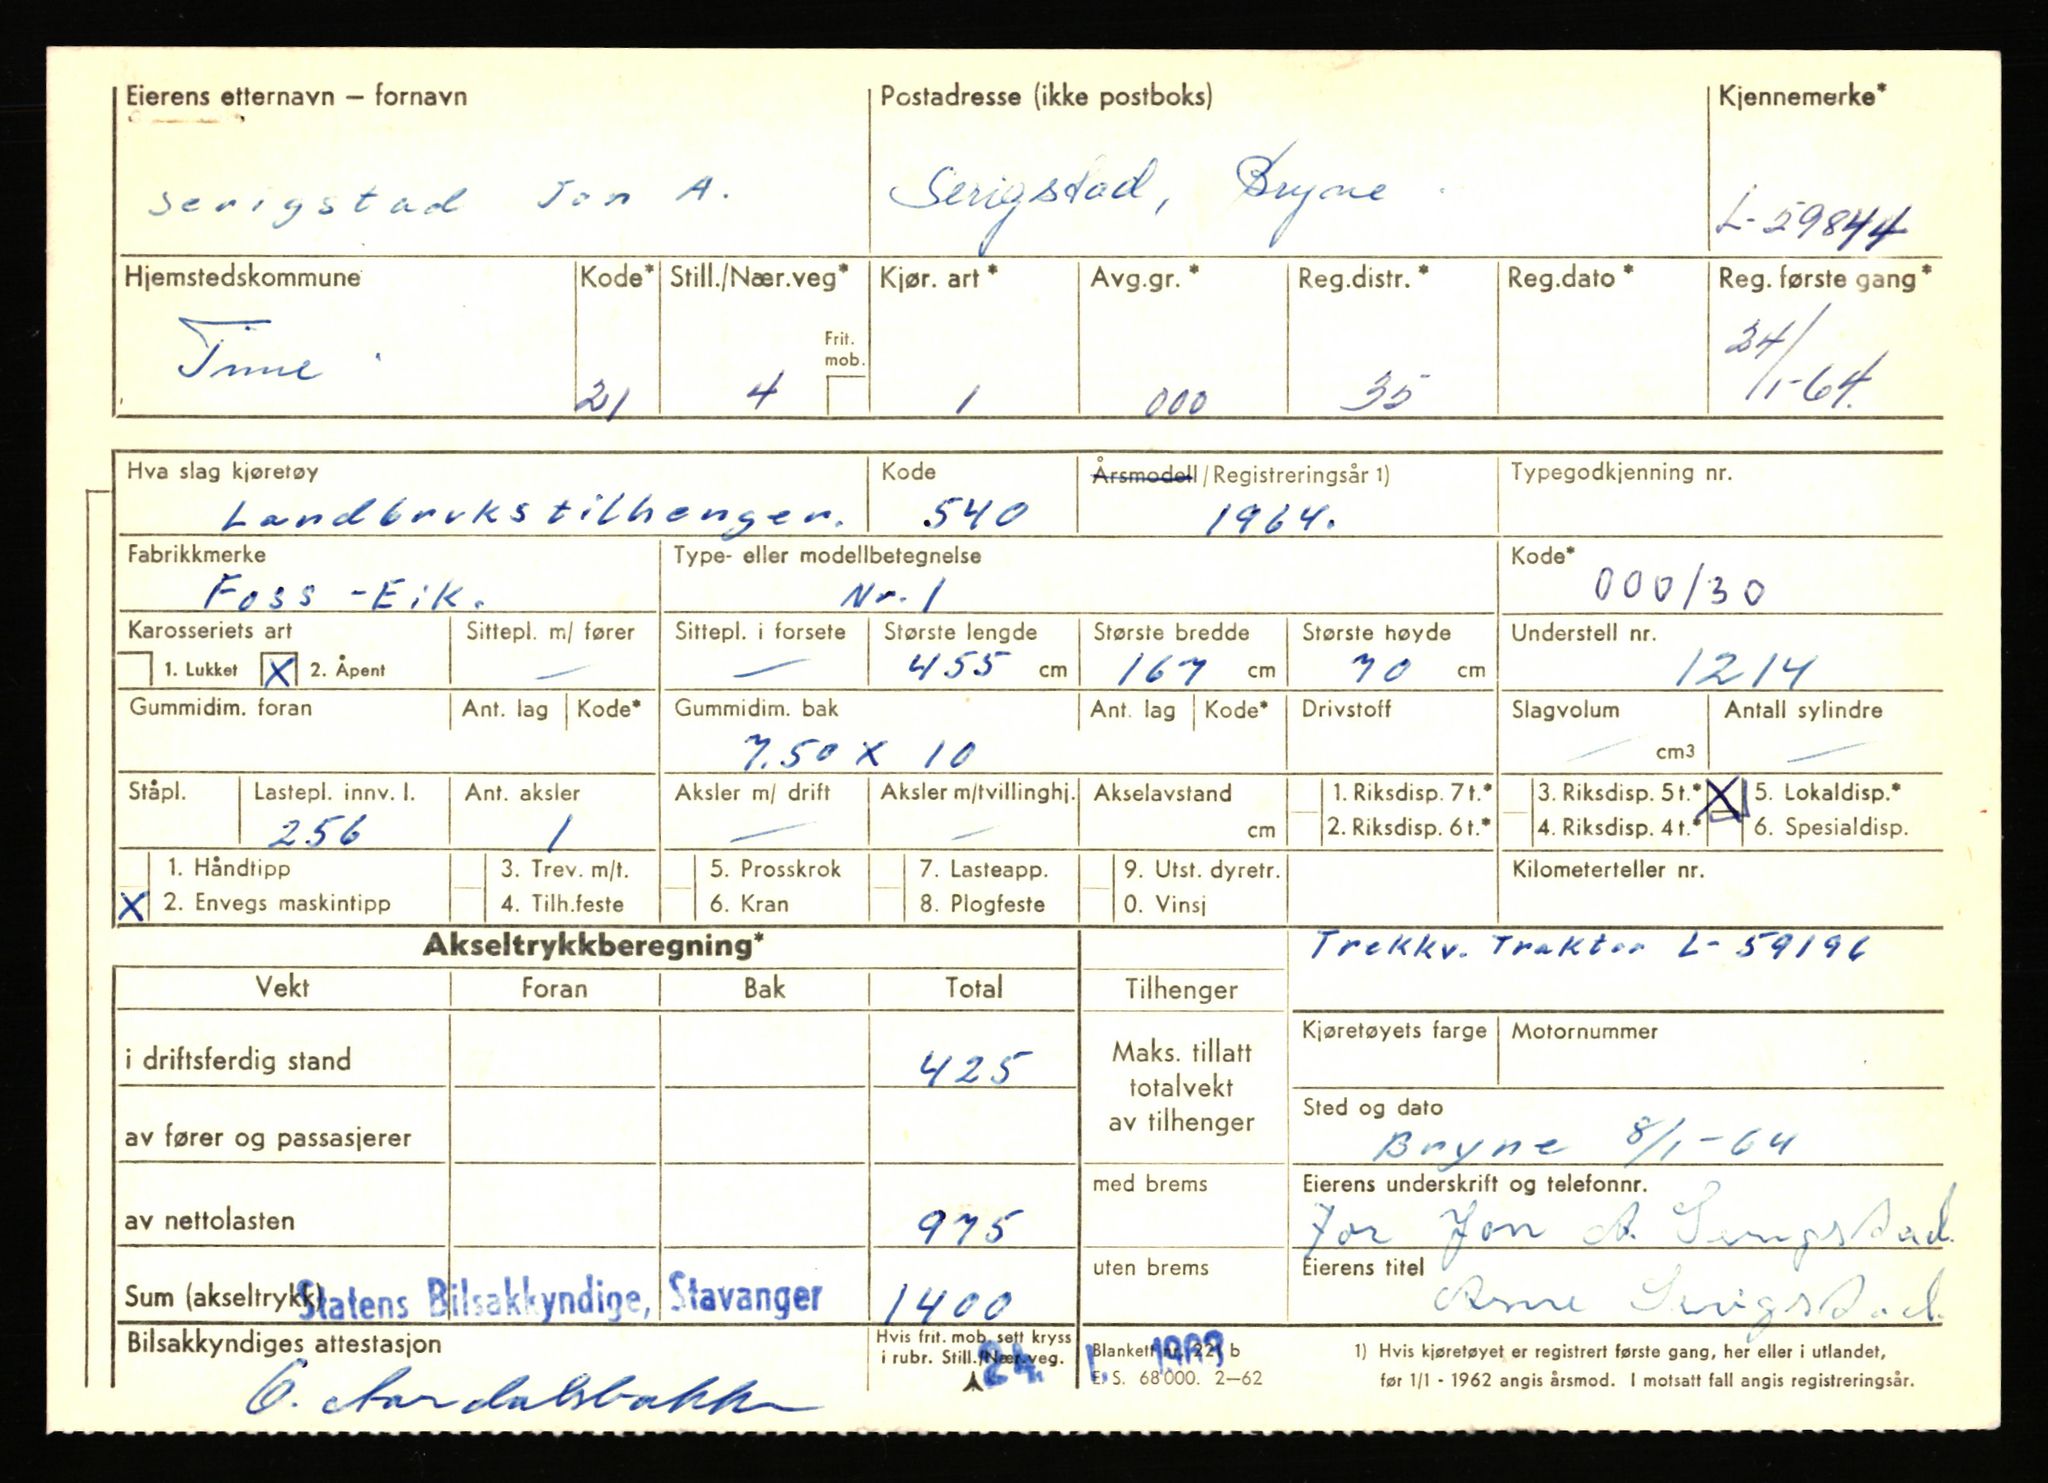 Eierens etternavn – fornavn Postadresse (ikke postboks) Kjennemerke*
Serigstad Jon A. Serigstad, Bryne L-59844
Hjemstedskommune Kode* Still./Nær.veg* Kjør. art* Avg.gr.* Reg.distr.* Reg.dato* Reg. første gang*
Frit. mob.
Time 21 4 1 000 35 24/1-64.
Hva slag kjøretøy Kode Årsmodell/Registreringsår 1) Typegodkjenning nr.
Landbrukstilhenger. 540 1964.
Fabrikkmerke Type- eller modellbetegnelse Kode*
Foss-Eik. Nr. 1 000/30
Karosseriets art Sittepl. m/ fører Sittepl. i forsete Største lengde Største bredde Største høyde Understell nr.
1. Lukket X 2. Åpent — — 455 cm 167 cm 70 cm 1214
Gummidim. foran Ant. lag Kode* Gummidim. bak Ant. lag Kode* Drivstoff Slagvolum Antall sylindre
7.50 x 10 — cm3 —
Ståpl. Lastepl. innv. l. Ant. aksler Aksler m/ drift Aksler m/tvillinghj. Akselavstand 1. Riksdisp. 7 t.* 3. Riksdisp. 5 t.* X 5. Lokaldisp.*
256 1 — — cm 2. Riksdisp. 6 t.* 4. Riksdisp. 4 t.* 6. Spesialdisp.
1. Håndtipp 3. Trev. m/t. 5. Prosskrok 7. Lasteapp. 9. Utst. dyretr. Kilometerteller nr.
X 2. Envegs maskintipp 4. Tilh.feste 6. Kran 8. Plogfeste 0. Vinsj
Akseltrykkberegning* Trekkv. Traktor L-59196
Vekt Foran Bak Total Tilhenger
Kjøretøyets farge Motornummer
i driftsferdig stand 425 Maks. tillatt
totalvekt
av tilhenger
Sted og dato
av fører og passasjerer Bryne 8/1-64
med brems Eierens underskrift og telefonnr.
av nettolasten 975 for Jon A. Serigstad.
uten brems Eierens titel
Sum (akseltrykk) Statens Bilsakkyndige, Stavanger 1400 Arne Serigstad.
Bilsakkyndiges attestasjon Hvis frit. mob. sett kryss
i rubr. Still./Nær.veg. Blankett nr. 221 b
24. 1.
E. S. 68 000. 2–62
1) Hvis kjøretøyet er registrert første gang, her eller i utlandet,
før 1/1 - 1962 angis årsmod. I motsatt fall angis registreringsår.